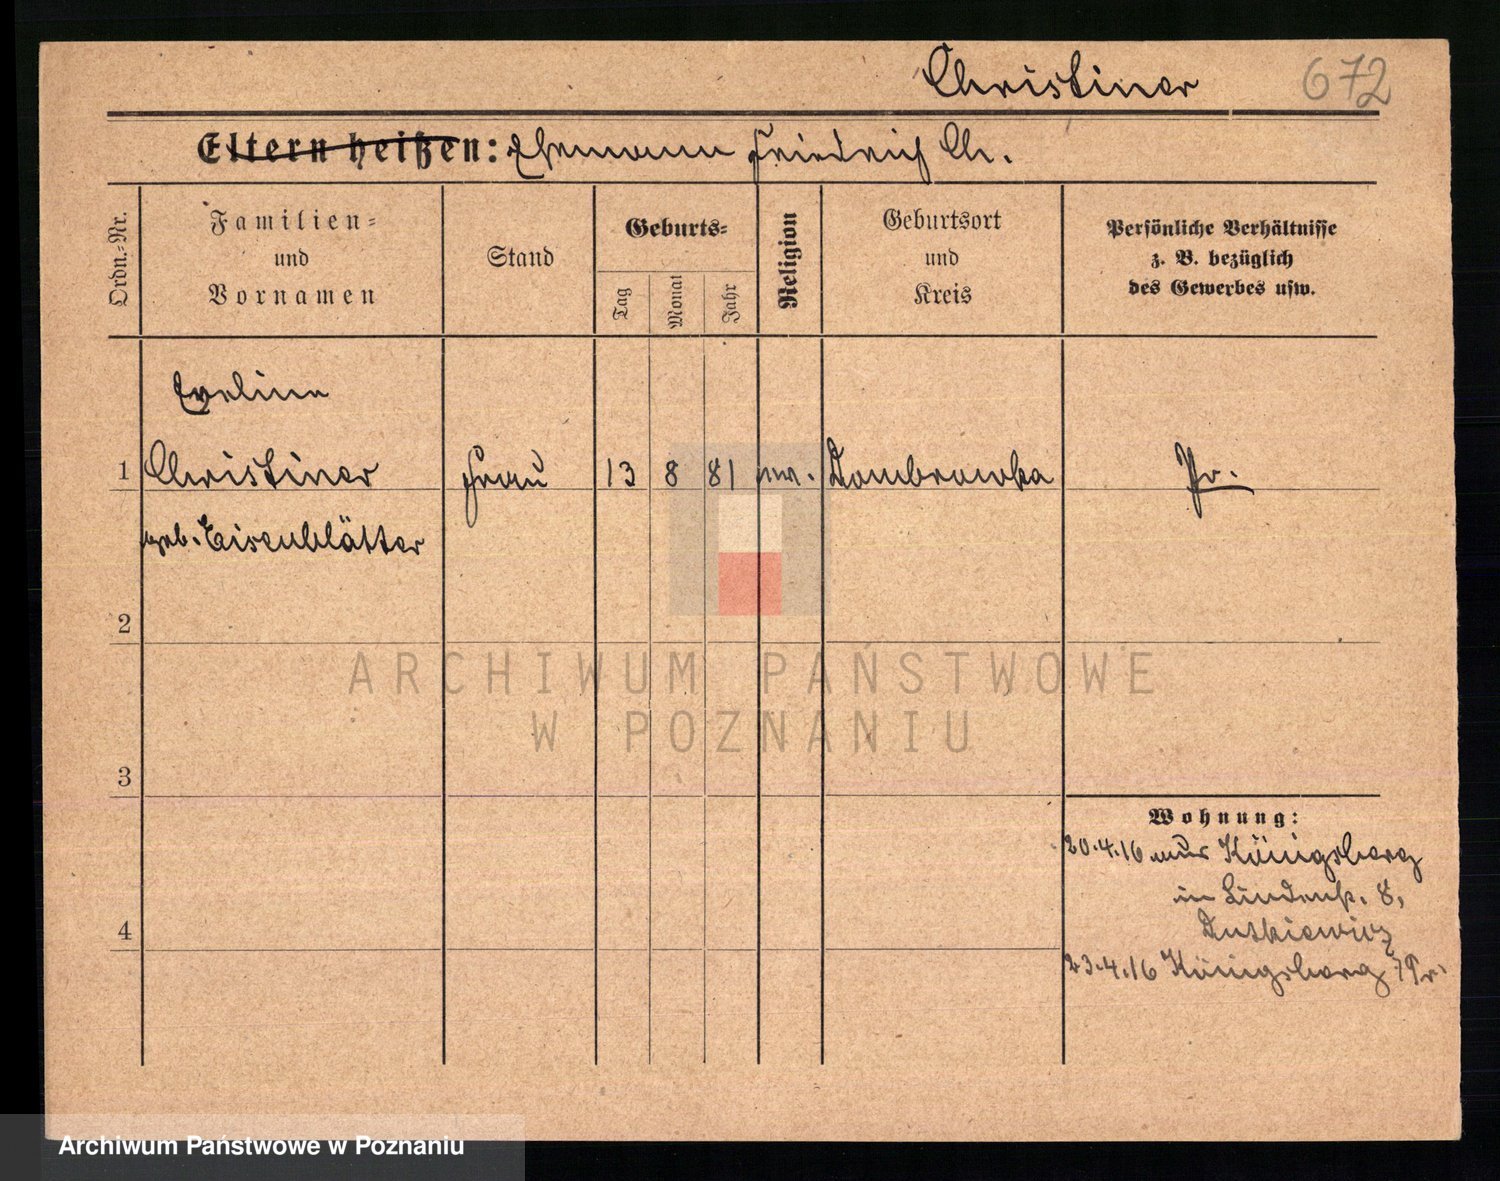 Christiner 672
Eltern heißen: Ehemann Friedrich Ch.
Ordn.-Nr.
Familien-
und
Vornamen
Stand
Geburts-
Tag
Monat
Jahr
Religion
Geburtsort
und
Kreis
Persönliche Verhältnisse
z. B. bezüglich
des Gewerbes usw.
Eveline
1 Christiner Frau 13 8 81 ev. Dombrowka Pr.
geb. Eisenblätter
2
3
4
Wohnung:
20.4.16 aus Königsberg
in Lindenstr. 8,
Dutkiewicz
23.4.16 Königsberg /Pr.
ARCHIWUM PAŃSTWOWE
W POZNANIU
Archiwum Państwowe w Poznaniu